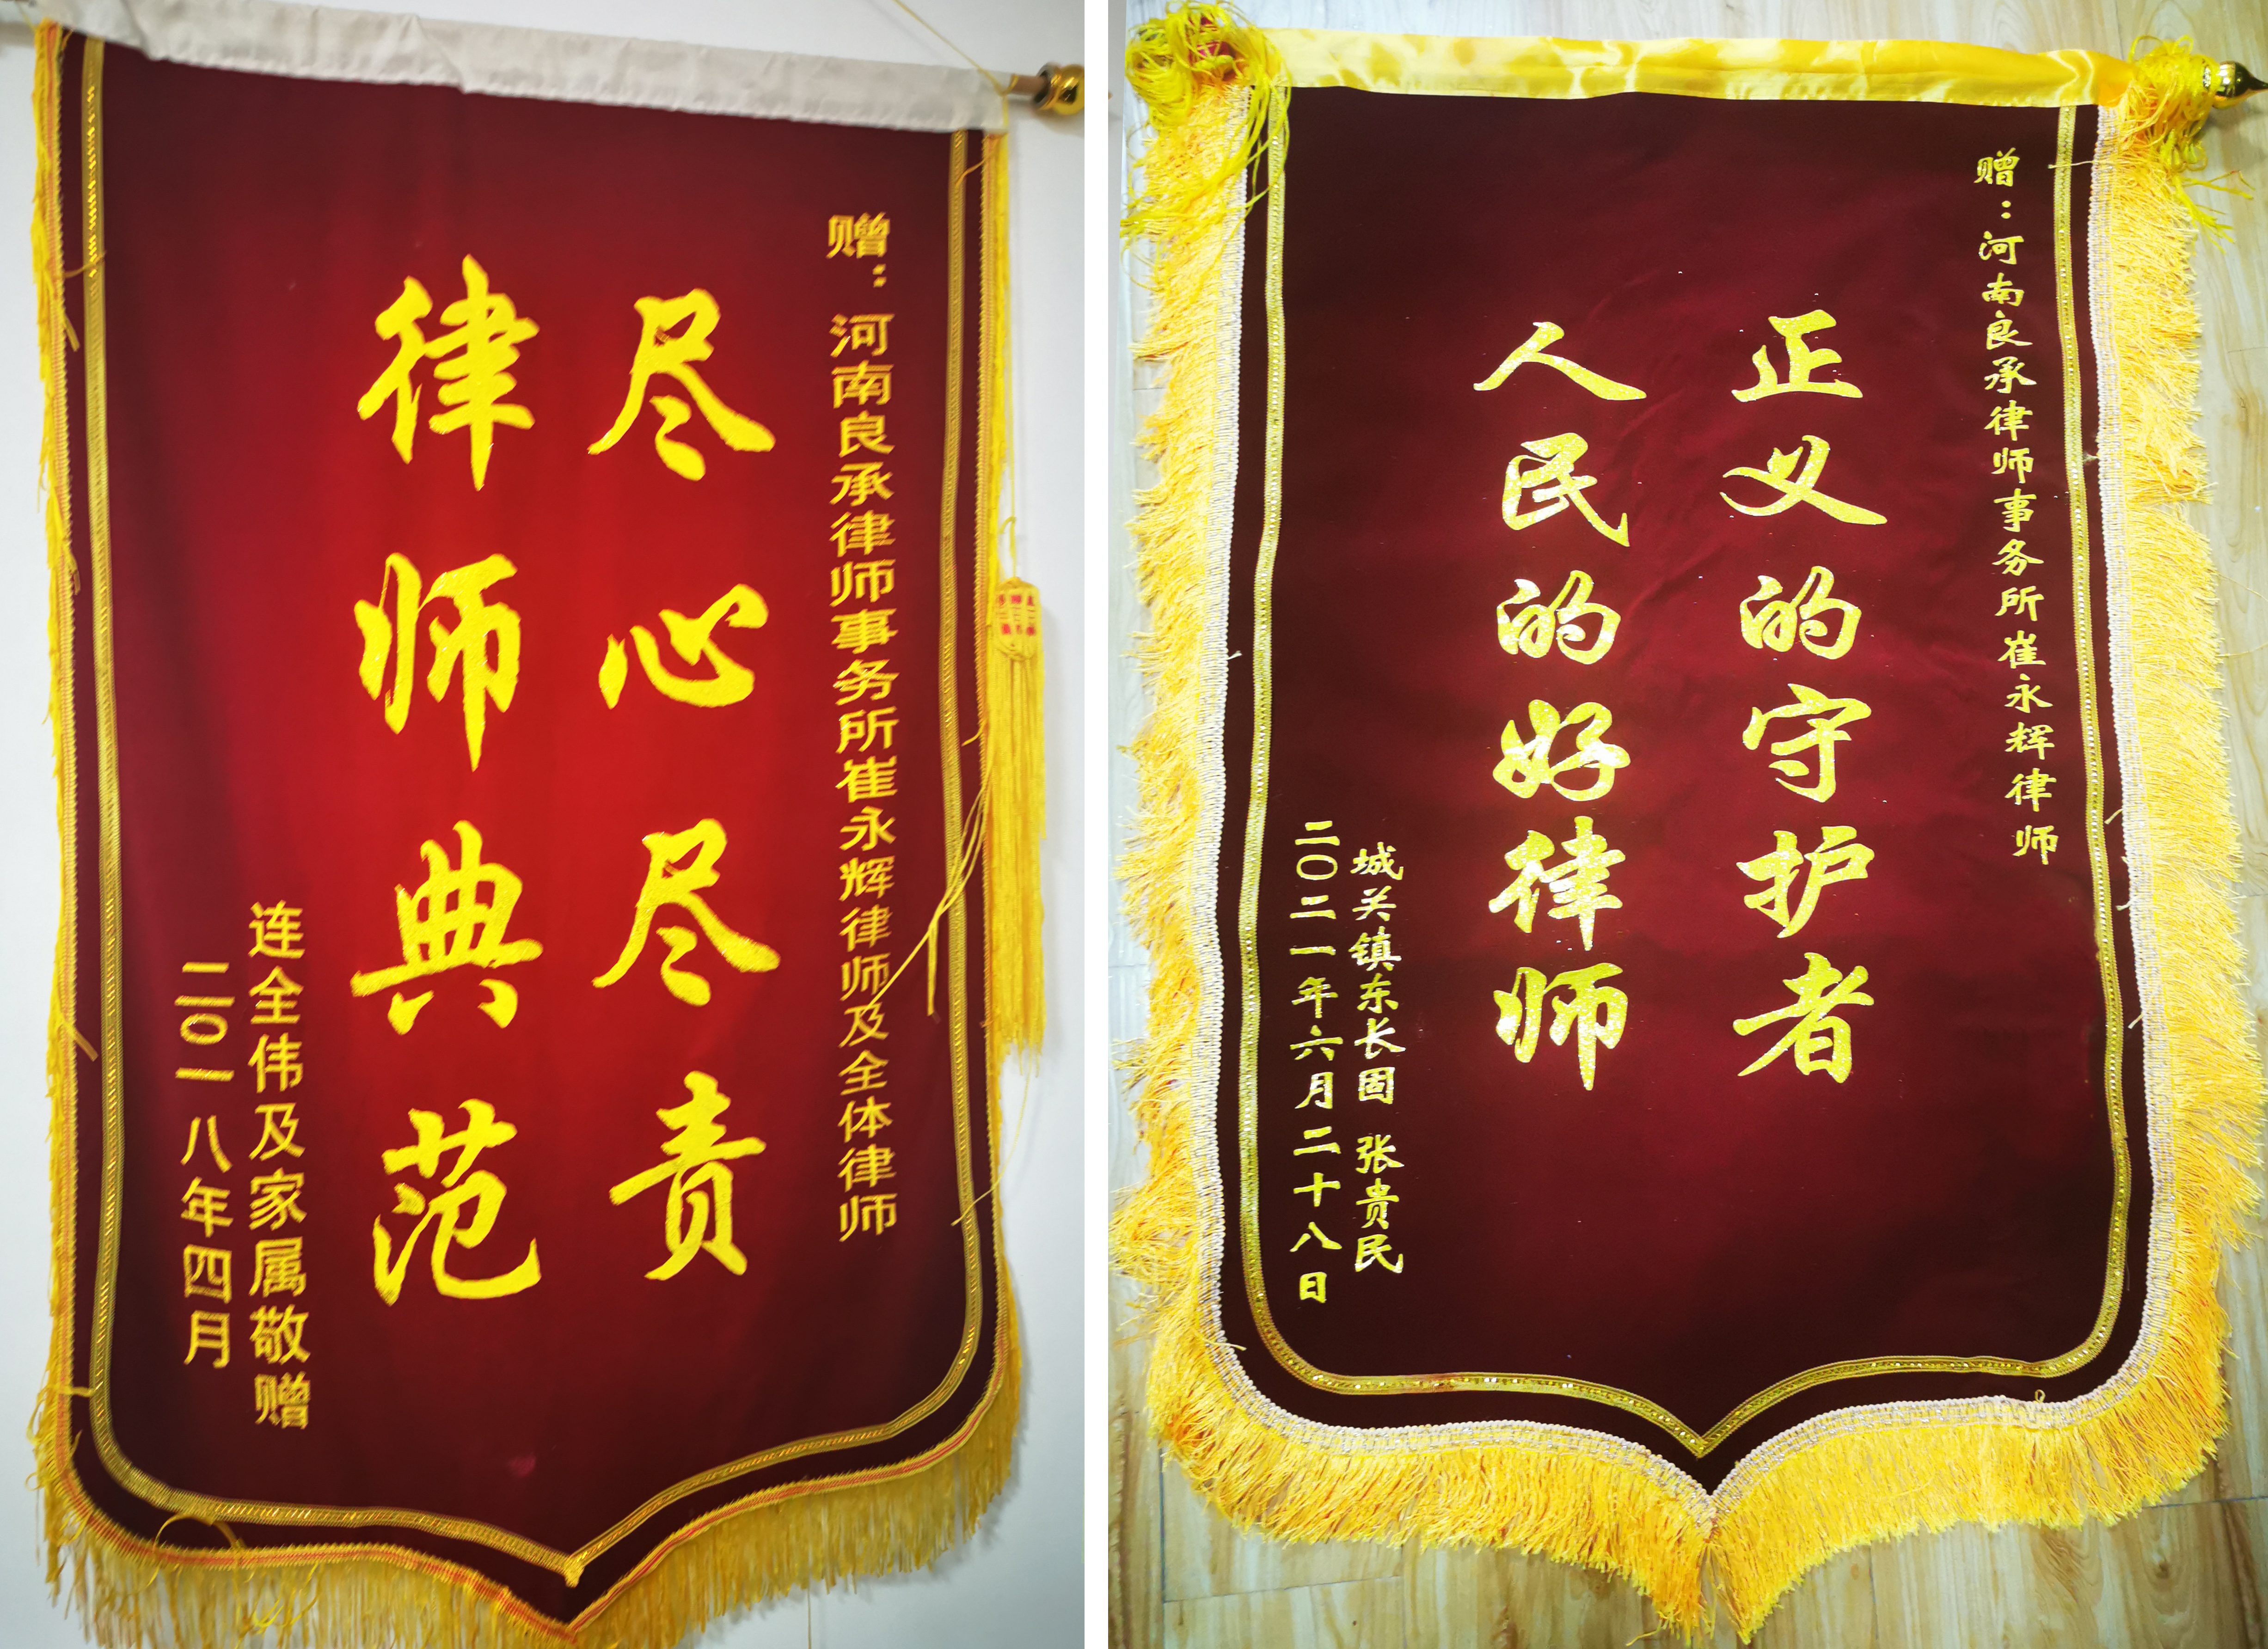 赠：河南良承律师事务所崔永辉律师及全体律师
尽心尽责
律师典范
连全伟及家属敬赠
二〇一八年四月
赠：河南良承律师事务所崔永辉律师
正义的守护者
人民的好律师
城关镇东长固 张贵民
二〇二一年六月二十八日